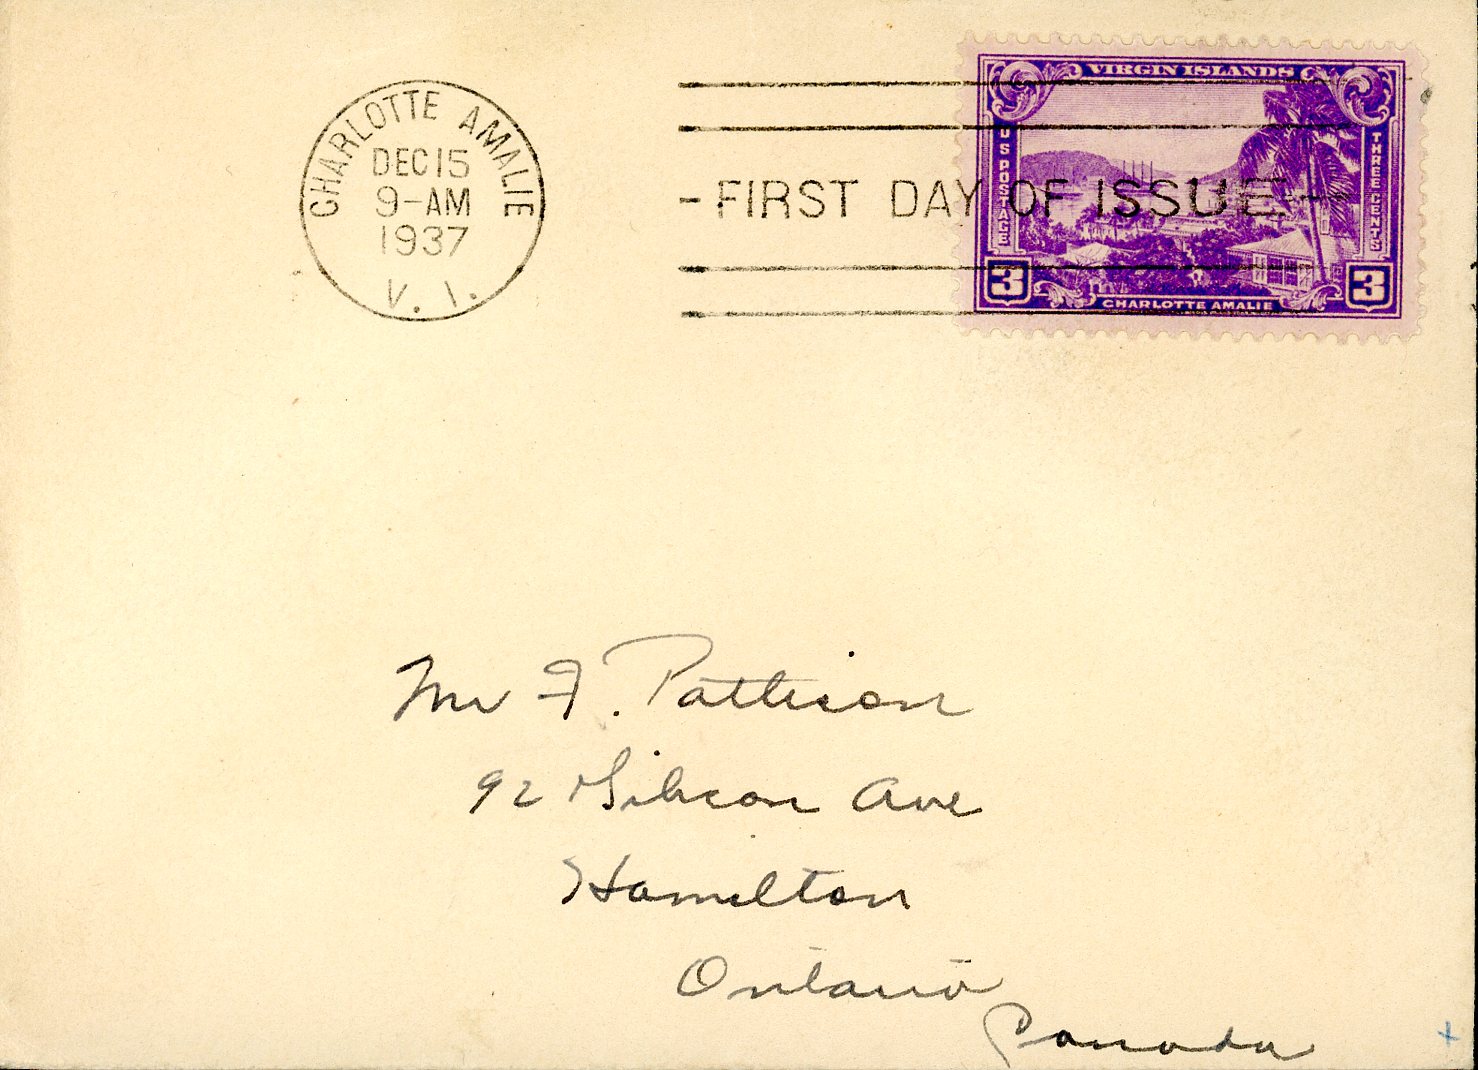 CHARLOTTE AMALIE
DEC 15
9-AM
1937
V. I.
- FIRST DAY OF ISSUE -
VIRGIN ISLANDS
U S POSTAGE
THREE CENTS
3 3
CHARLOTTE AMALIE
Mr F. Pattison
92 Gibson Ave
Hamilton
Ontario
Canada